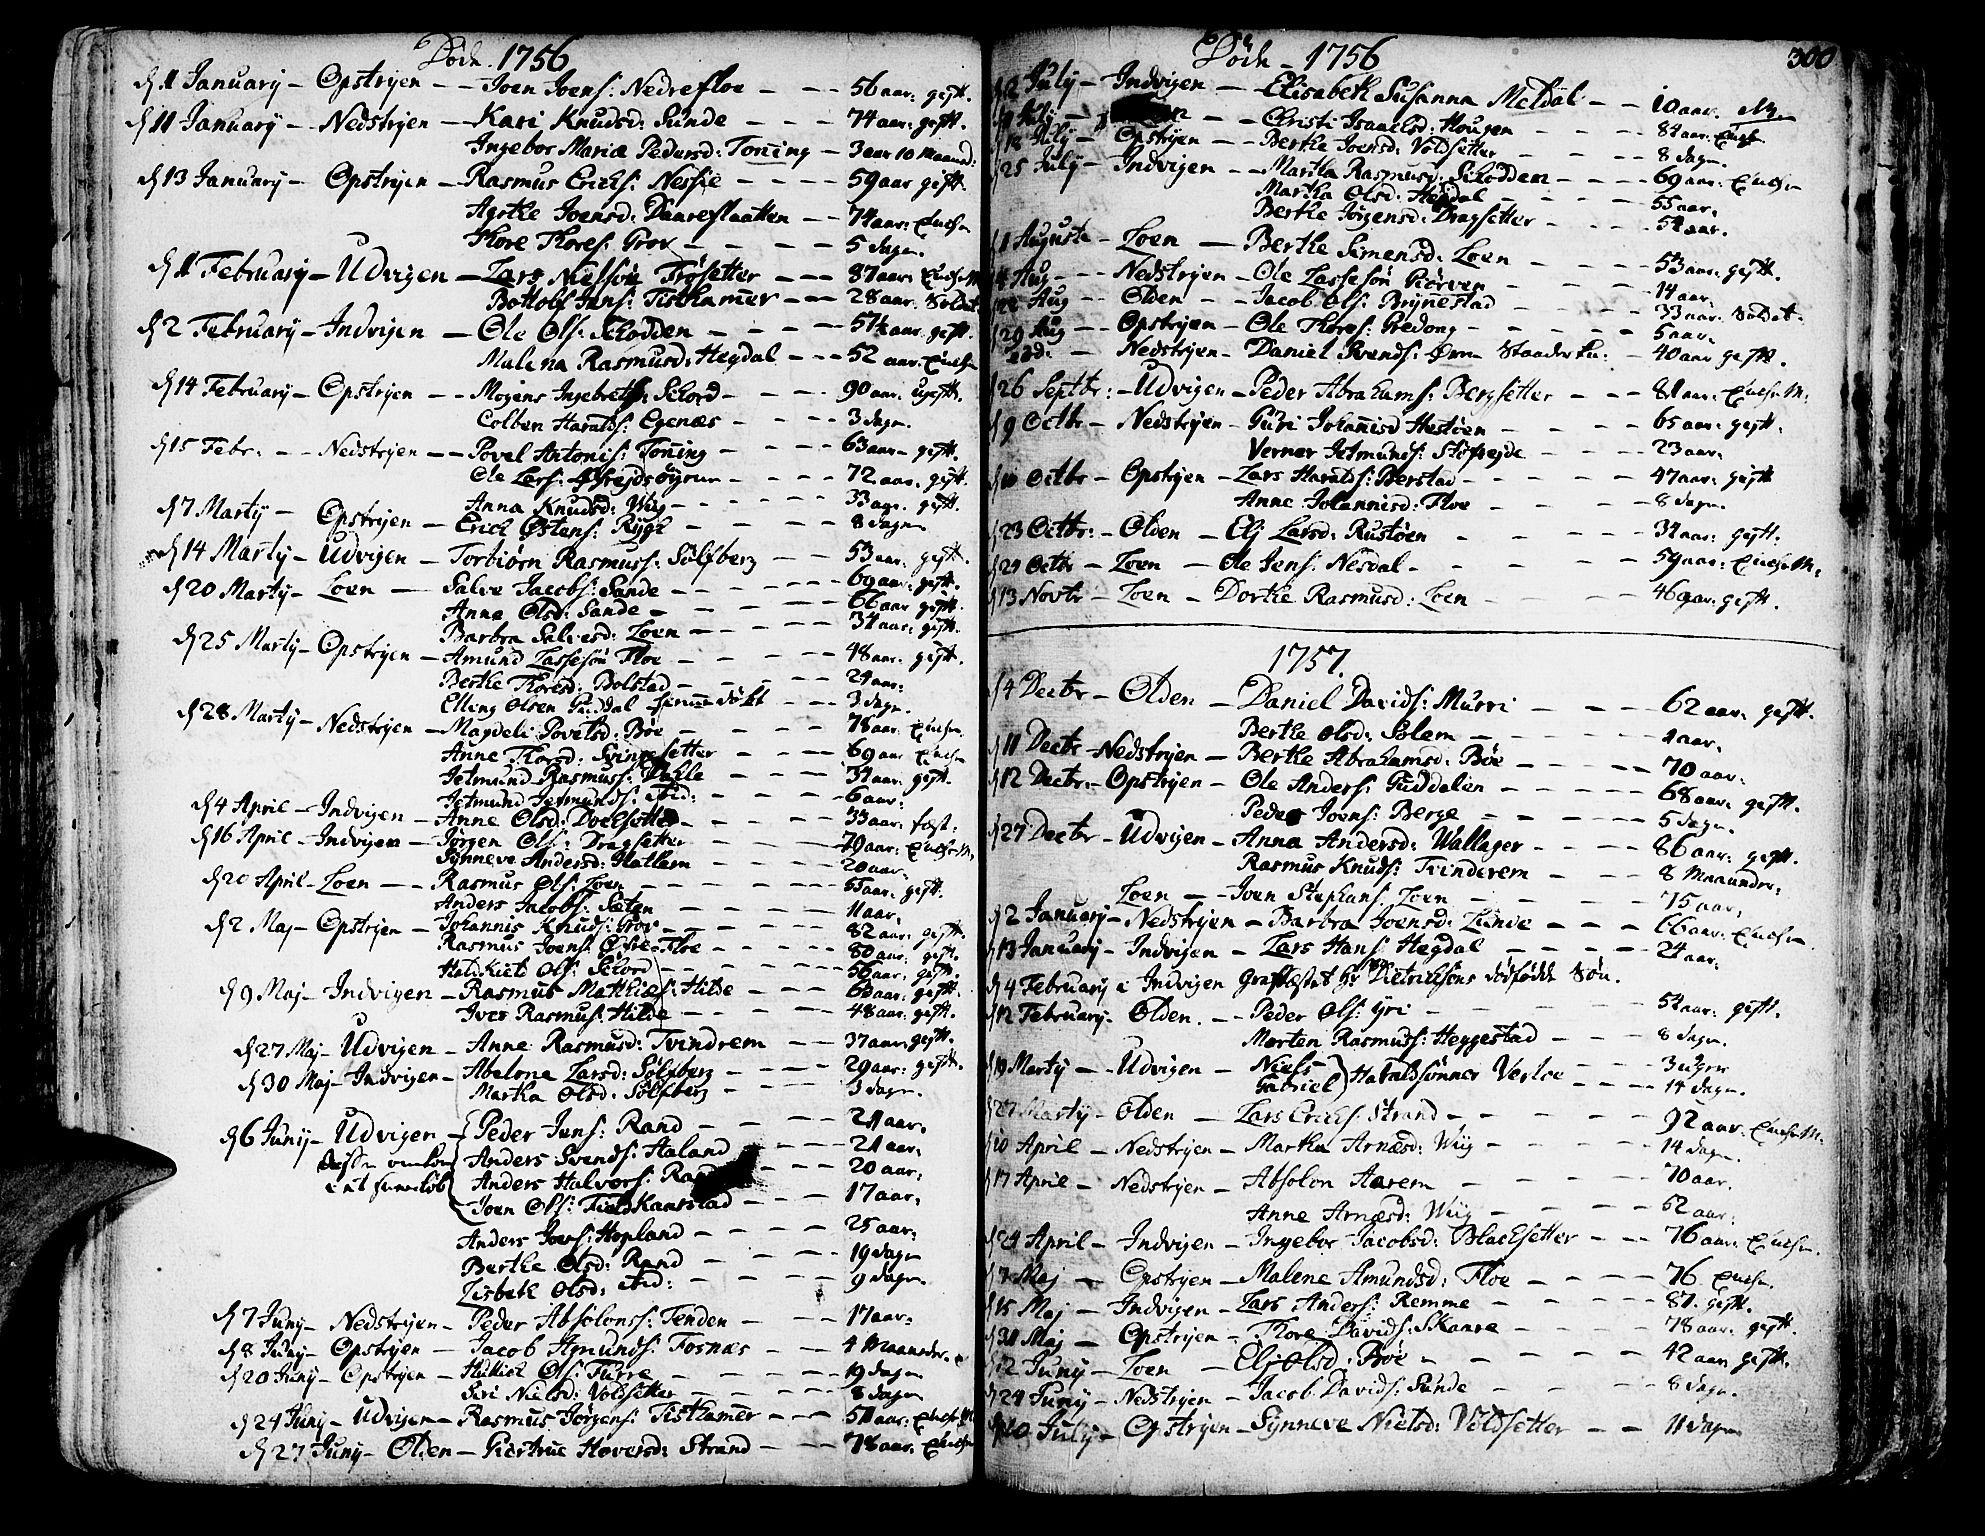 Døde 1756
1 January - Opstryen - Joen Joens: Nedrefloe - 56 aar: gift.
11 January - Nedstryen - Kari Knudsd: Sunde - 74 aar: gift.
Ingebor Maria Pedersd: Toning - 3 aar 10 Maand:
13 January - Opstryen - Rasmus Ericks: Nessie - 59 aar gift.
Agethe Joensd: Daareslaatten - 74 aar: Enche
Thore Thores: Grov - 5 dage
1 February - Udvigen - Lars Nielssøn Frøsetter - 87 aar: Enche M
Bottolf Jens: Tisthamer - 28 aar. Soldat
2 February - Indvigen - Ole Ols: Skodden - aar. gift.
Malena Rasmusd: Hegdal - 52 aar. Enche
14 February - Opstryen - Mogens Ingebrets: Skord - 90 aar. ugift.
Colben Haralds: Egenæs - 3 dage.
15 Febr: - Nedstryen - Povel Antonis: Toning - 63 aar gift.
Ole Lars: - 72 aar. gift.
7 Marty - Opstryen - Anna Knudsd: Wiig - 33 aar. gift.
Erick Østens: Rygh - 8 dage
14 Marty - Udvigen - Torbiørn Rasmuss: Sølfberg - 53 aar: gift.
20 Marty - Loen - Salve Jacobs: Sande - 69 aar: gift.
Anne Olsd: Sande - 66 aar gift.
Barbra Salvesd: Loen - 34 aar: gift.
25 Marty - Opstryen - Amund Lassesøn Floe - 48 aar: gift.
Berthe Thoresd: Bolstad - 24 aar:
Elling Olsen Guddal - 3 dage.
28 Marty - Nedstryen - Magdeli Povelsd: Bøe - 78 aar Enche
Anne Thorsd: setter - 69 aar Enche
Jetmund Rasmuss: Dahle - 34 aar: gift.
Jetmund Jetmunds: ibid: - 6 aar:
4 April - Indvigen - Anne Olsd: Docksetter - 33 aar: fæst:
16 April - Indvigen - Jørgen Ols: Dragsetter - 70 aar: Enche M,
Synneve Andersd: Hatlem - 20 aar:
20 April - Loen - Rasmus Ols: Loen - 55 aar. gift.
Anders Jacobs: Sæten - 11 aar,
2 Maj - Opstryen - Johannis Knuds: Grov - 82 aar: gift.
Rasmus Joens: Øvre-Floe - 80 aar: gift.
Ols: Skord - 56 aar: gift.
9 Maj - Indvigen - Rasmus Matthias: Hilde - 68 aar: gift.
Iver Rasmus: Hilde - 48 aar: gift.
27 Maj - Udvigen - Anne Rasmusd: Tvindrem - 37 aar: gift.
30 Maj - Indvigen - Abelone Larsd: Sølfberg - 29 aar: gift.
Martha Olsd: Sølfberg - 3 dage.
6 Juny - Udvigen - Peder Jens: Rand - 24 aar,
disse omkom Anders Svends: Haland - 21 aar,
i et Anders Halvors: Rand - 20 aar,
Joen Ols: - 17 aar,
Anders Joens: Hopland - 25 aar,
Berthe Olsd: Rand - 19 dage
Lisbeth Olsd: ibid: - 9 dage.
7 Juny - Nedstryen - Peder Absolons: Tenden - 17 aar.
8 Juny - Opstryen - Jacob Amunds: Fosnæs - 4 Maaneder.
20 Juny - Opstryen - Ols: Furre - 19 dage
Siri Nielsd: Voldsetter - 8 dage
24 Juny - Udvigen - Rasmus Jørgens: Tisthamer - 51 aar: Enche M
27 Juny - Olden - Giertrue Hoversd: Strand - 78 aar. Enche
Døde - 1756
300
2 July - Indvigen - Elisabeth Susanna Meldal - 10 aar.
July - Christi Isaachsd: Hougen - 84 aar. Enche
18 July - Opstryen - Berthe Joensd: Voldsetter - 8 dage.
25 July - Indvigen - Martha Rasmusd: Skodden - 69 aar: Enche
Martha Olsd: Hegdal - 55 aar.
Berthe Jørgensd: Dragsetter - 54 aar.
1 Augusti - Loen - Berthe Simensd: Loen - 53 aar: gift.
4 Aug - Nedstryen - Ole Lassesøn Giørven - 14 aar:
22 Aug - Olden - Jacob Ols: Brynestad - 33 aar: Soldat.
29 Aug - Opstryen - Ole Thores: Gredong - 5 aar.
Nedstryen - Daniel Svends: - 40 aar gift.
26 Septbr: - Udvigen - Peder Abrahams: Bergsetter - 81 aar: Enche M:
9 Octbr - Nedstryen - Guri Johannisd Hestøen - 65 aar: gift.
Verner Jetmunds: - 23 aar:
10 Octbr - Opstryen - Lars Haralds: Berstad - 47 aar: gift
Anne Johannisd: Floe - 8 dage.
23 Octbr: - Olden - Eli Larsd: Rustøen - 34 aar: gift.
24 Octbr - Loen - Ole Jens: Nesdal - 59 aar: Enche M:
13 Novbr - Loen - Dorthe Rasmusd: Loen - 46 aar: gift.
1757.
4 Decbr - Olden - Daniel Davids: Murri - 62 aar: gift.
Berthe Olsd: Solem - 1 aar,
11 Decbr - Nedstryen - Berthe Abrahamsd: Bøe - 70 aar:
12 Decbr: - Opstryen - Ole Anders: Guddalen - 68 aar: gift.
Peder Joens: Berge - 5 dage.
27 Decbr - Udvigen - Anna Andersd: Wallager - 86 aar: gift.
Rasmus Knuds: Tvinderem - 8 Maaneder,
Loen - Iven Stephans: Loen - 75 aar,
2 January - Nedstryen - Barbra Joensd: Sunde - 66 aar: Enche
13 January - Indvigen - Lars Hans: Hegdal - 24 aar:
4 February i Indvigen Grafæstet Hr Dietrichsons dødfødde Søn.
12 February - Olden - Peder Ols: Yri - 54 aar: gift.
Morten Rasmuss: Heggestad - 8 dage.
19 Marty - Udvigen - Niels - 3 uger
Gabriel Haraldsønner Verloe - 14 dage.
27 Marty - Olden - Lars Ericks: Strand - 92 aar: Enche M:
10 April - Nedstryen - Martha Arnæsd: Wiig - 14 dage.
17 April - Nedstryen - Absolon Aarem - 70 aar.
Anne Arnæsd: Wiig - 52 aar:
24 April - Indvigen - Ingebor Jacobsd: Blacksetter - 76 aar: Enche.
7 Maj - Opstryen - Malene Amundsd: Floe - 76 Enche
15 Maj - Indvigen - Lars Anders: Remme - 87. gift.
31 Maj - Opstryen - Thore Davids: Skaare - 78 aar: gift.
12 Juny - Loen - Eli Olsd: Bøe - 42 aar gift.
24 Juny - Nedstryen - Jacob Davids: Sunde - 8 dage.
10 July - Opstryen - Synneve Nielsd: Voldsetter - 11 dage